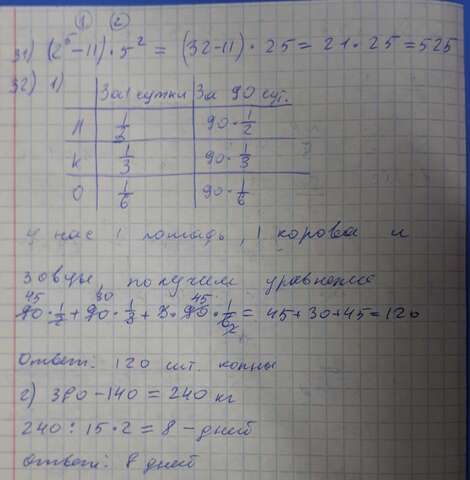 ① ②
31) (2⁵-11)·5² = (32-11)·25 = 21·25 = 525
32) 1)
За 1 сутки За 90 сут.
Л 1/2 90·1/2
К 1/3 90·1/3
О 1/6 90·1/6
У нас 1 лошадь, 1 корова и
3 овцы, получим уравнение
45 30 45
90·1/2 + 90·1/3 + 3·90·1/6 = 45+30+45=120
2
Ответ: 120 шт. копны
2) 380-140 = 240 кг
240 : 15·2 = 8 - дней
Ответ: 8 дней